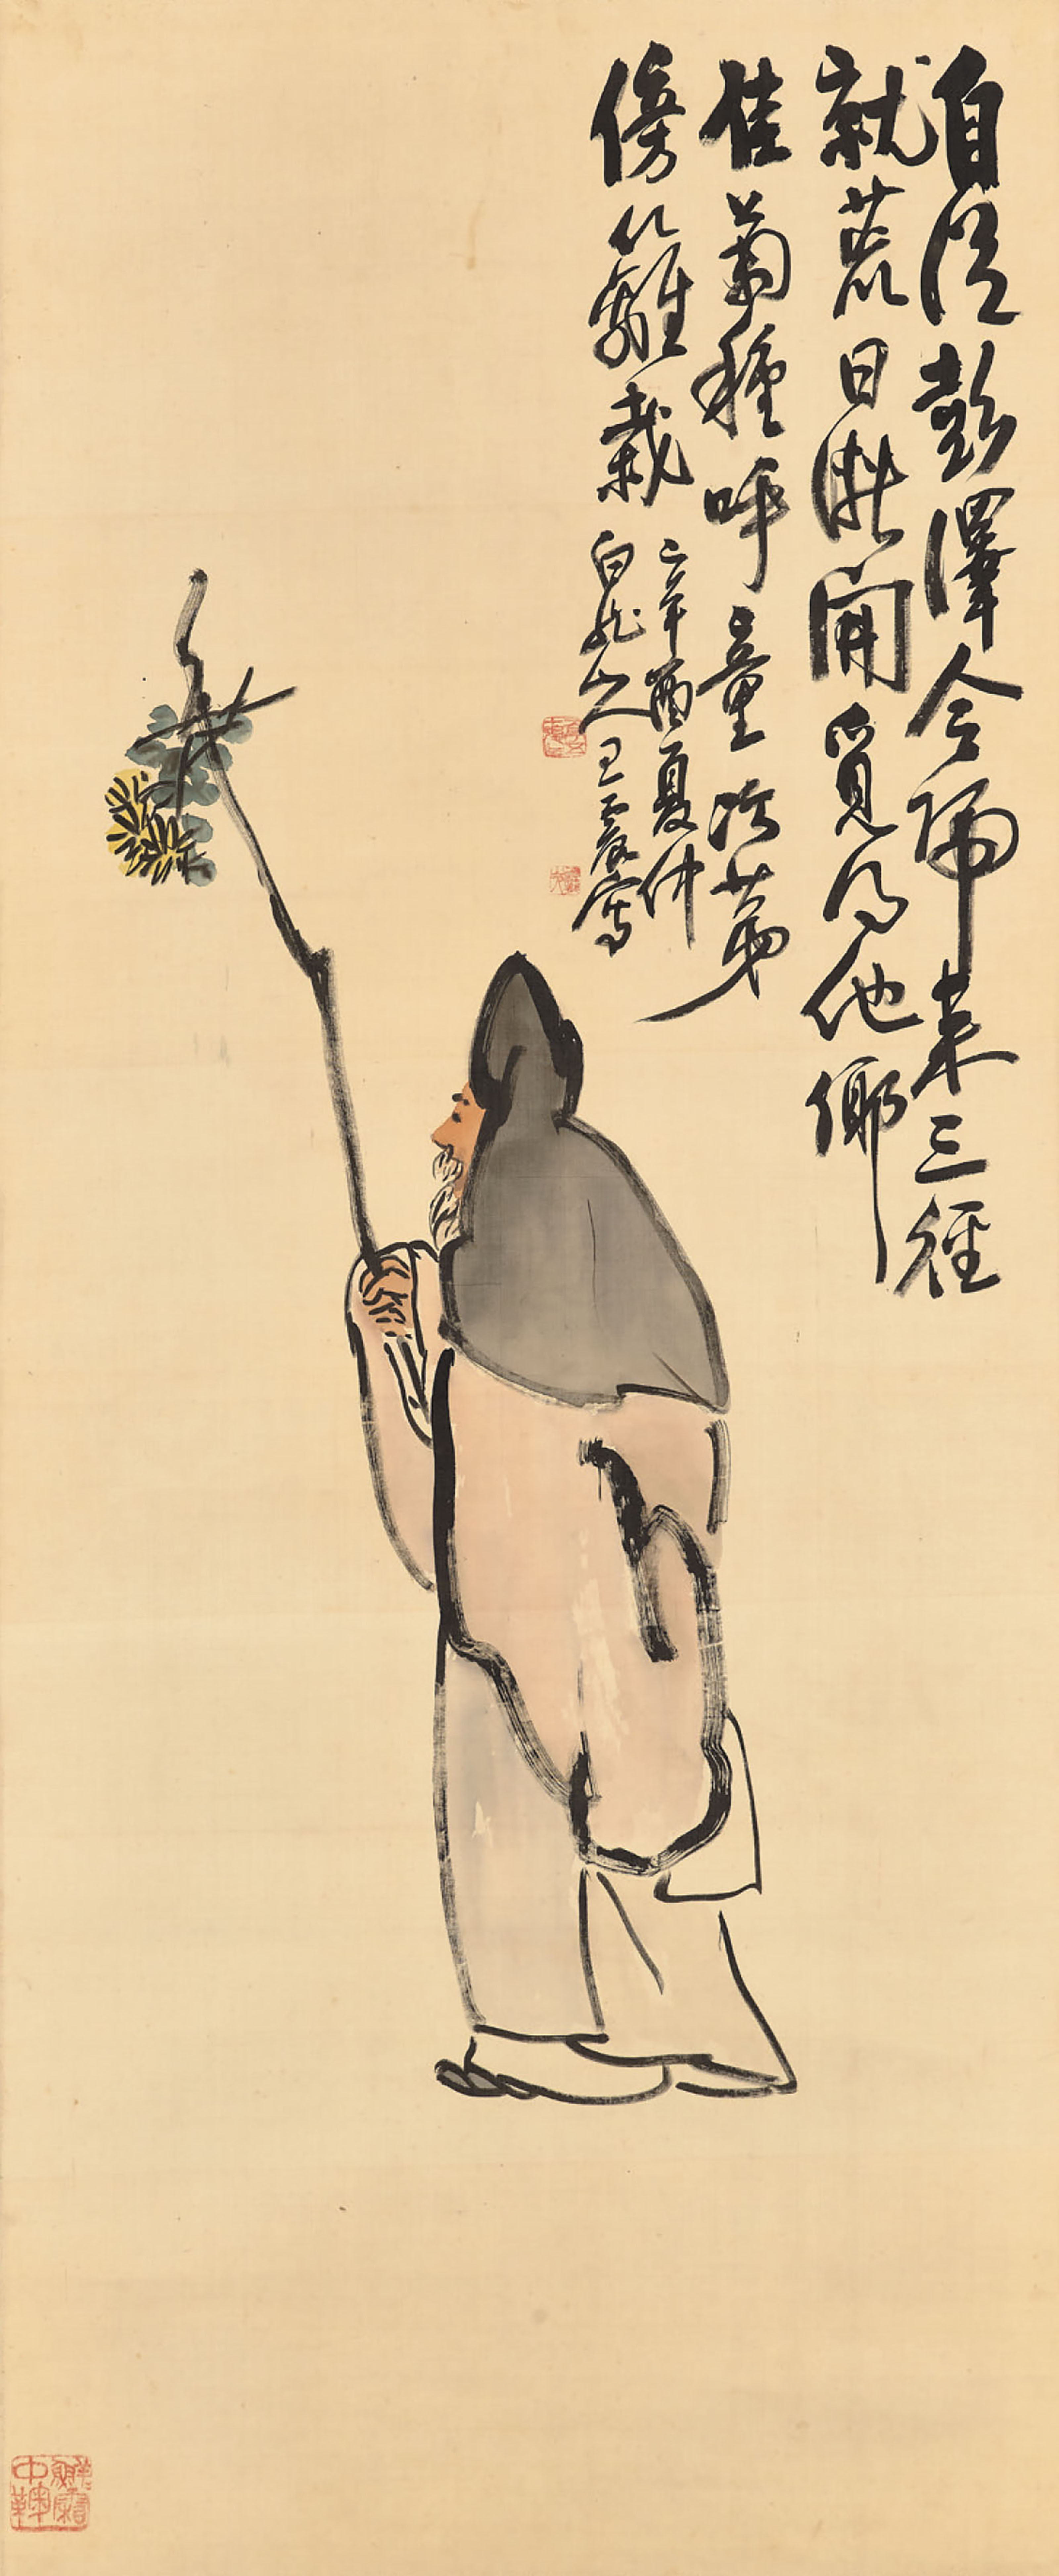 自從彭澤令歸來三徑
就荒日漸開覓得他鄉
佳菊種呼童次第
傍籬栽
辛酉夏仲
白龍山人王震寫